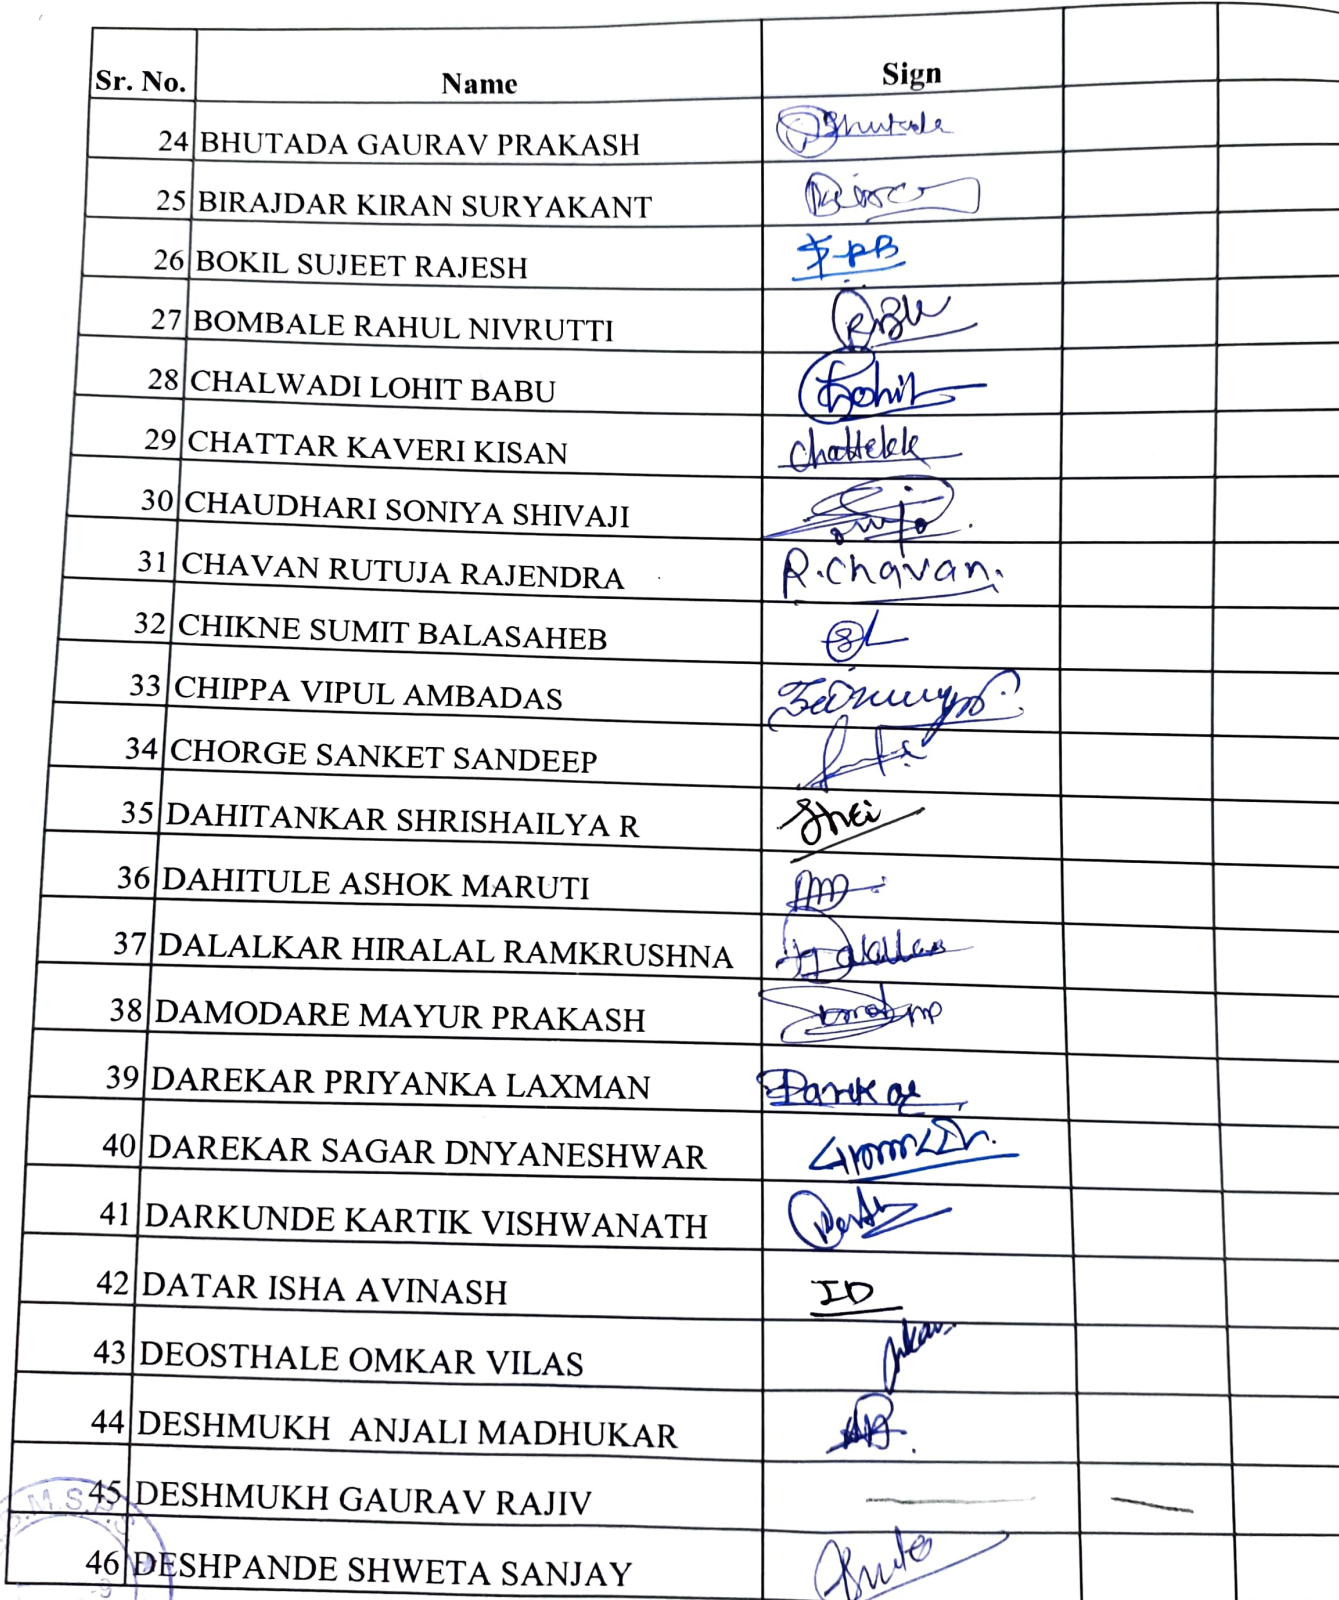 Sr. No. Name Sign
24 BHUTADA GAURAV PRAKASH Bhutada
25 BIRAJDAR KIRAN SURYAKANT
26 BOKIL SUJEET RAJESH
27 BOMBALE RAHUL NIVRUTTI
28 CHALWADI LOHIT BABU Lohit
29 CHATTAR KAVERI KISAN
30 CHAUDHARI SONIYA SHIVAJI
31 CHAVAN RUTUJA RAJENDRA R.Chavan.
32 CHIKNE SUMIT BALASAHEB
33 CHIPPA VIPUL AMBADAS
34 CHORGE SANKET SANDEEP
35 DAHITANKAR SHRISHAILYA R
36 DAHITULE ASHOK MARUTI
37 DALALKAR HIRALAL RAMKRUSHNA
38 DAMODARE MAYUR PRAKASH
39 DAREKAR PRIYANKA LAXMAN
40 DAREKAR SAGAR DNYANESHWAR
41 DARKUNDE KARTIK VISHWANATH
42 DATAR ISHA AVINASH ID
43 DEOSTHALE OMKAR VILAS
44 DESHMUKH ANJALI MADHUKAR
45 DESHMUKH GAURAV RAJIV
46 DESHPANDE SHWETA SANJAY